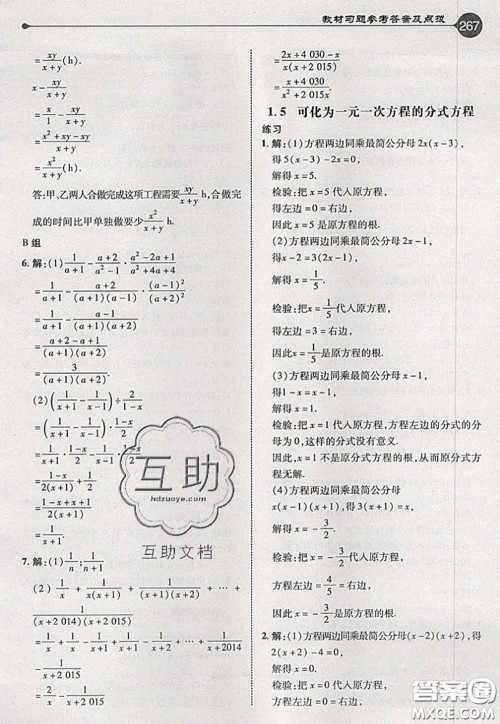 教材习题参考答案及点拨
267
=\frac{xy}{x+y}(h).
x-\frac{xy}{x+y}
=\frac{x^2+xy-xy}{x+y}
=\frac{x^2}{x+y}(h).
答:甲、乙两人合做完成这项工程需要\frac{xy}{x+y} h,合做完
成的时间比甲单独做要少\frac{x^2}{x+y} h.
B 组
6. 解:(1)\frac{1}{a+1}-\frac{a+2}{a^2-1}·\frac{a^2-2a+1}{a^2+4a+4}
=\frac{1}{a+1}-\frac{a+2}{(a+1)(a-1)}·\frac{(a-1)^2}{(a+2)^2}
=\frac{1}{a+1}-\frac{a-1}{(a+1)(a+2)}
=\frac{a+2-a+1}{(a+1)(a+2)}
=\frac{3}{(a+1)(a+2)}.
(2)(\frac{1}{x+1}-\frac{1}{x-1})÷\frac{2}{1-x}
=(\frac{1}{x+1}-\frac{1}{x-1})·\frac{1-x}{2}
=\frac{1-x}{2(x+1)}+\frac{1}{2}
=\frac{1-x+x+1}{2(x+1)}
=\frac{1}{x+1}.
7. 解:(1)\frac{1}{n};\frac{1}{n+1}
(2)\frac{1}{x}+\frac{1}{x(x+1)}+\frac{1}{(x+1)(x+2)}+…+
\frac{1}{(x+2 014)(x+2 015)}
=\frac{1}{x}+\frac{1}{x}-\frac{1}{x+1}+\frac{1}{x+1}-\frac{1}{x+2}+…+\frac{1}{x+2014}
-\frac{1}{x+2 015}
=\frac{2}{x}-\frac{1}{x+2 015}
=\frac{2x+4 030-x}{x(x+2 015)}
=\frac{x+4 030}{x^2+2 015x}.
1.5 可化为一元一次方程的分式方程
练习
1. 解:(1)方程两边同乘最简公分母2x(x-3),
得5(x-3)-2x=0.
解得 x=5.
检验:把 x=5 代入原方程,
得左边=0=右边,
因此 x=5 是原方程的根.
(2)方程两边同乘最简公分母2x-1,
得 x-1-2(2x-1)=0.
解得 x=\frac{1}{5}.
检验:把 x=\frac{1}{5}代入原方程,
得左边=0=右边,
因此x=\frac{1}{5}是原方程的根.
(3)方程两边同乘最简公分母 x-1,
得1-x=0.
解得 x=1.
检验:把 x=1 代入原方程,方程左边的分式的分
母为0,这样的分式没有意义.
因此,x=1 不是原分式方程的根,从而原分式方程
无解.
(4)方程两边同乘最简公分母
x(x-1),得2x-3(x-1)=0.
解得 x=-\frac{3}{2}.
检验:把 x=-\frac{3}{2}代入原方程,
方程左边=\frac{4}{5}=右边,
因此 x=-\frac{3}{2}是原方程的根.
2. 解:(1)方程两边同乘最简公分母(x-2)(x+2),
得2(x+2)-4=0.
解得 x=0.
检验:把 x=0 代入原方程,
方程左边=-1=右边,
互助
hdzuoye.com
互助文档
答案圈
MXQE.COM